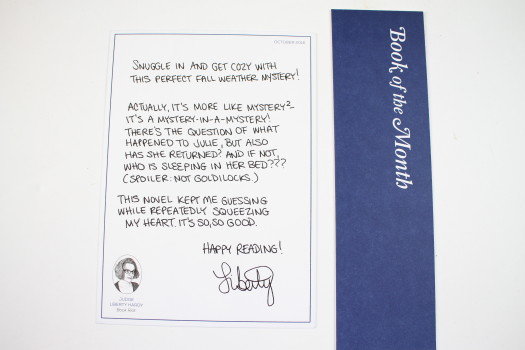 OCTOBER 2016
SNUGGLE IN AND GET COZY WITH
THIS PERFECT FALL WEATHER MYSTERY!
ACTUALLY, IT'S MORE LIKE MYSTERY²-
IT'S A MYSTERY-IN-A-MYSTERY!
THERE'S THE QUESTION OF WHAT
HAPPENED TO JULIE, BUT ALSO
HAS SHE RETURNED? AND IF NOT,
WHO IS SLEEPING IN HER BED???
(SPOILER: NOT GOLDILOCKS.)
THIS NOVEL KEPT ME GUESSING
WHILE REPEATEDLY SQUEEZING
MY HEART. IT'S SO, SO GOOD.
HAPPY READING!
Liberty
JUDGE
LIBERTY HARDY
Book Riot
Book of the Month